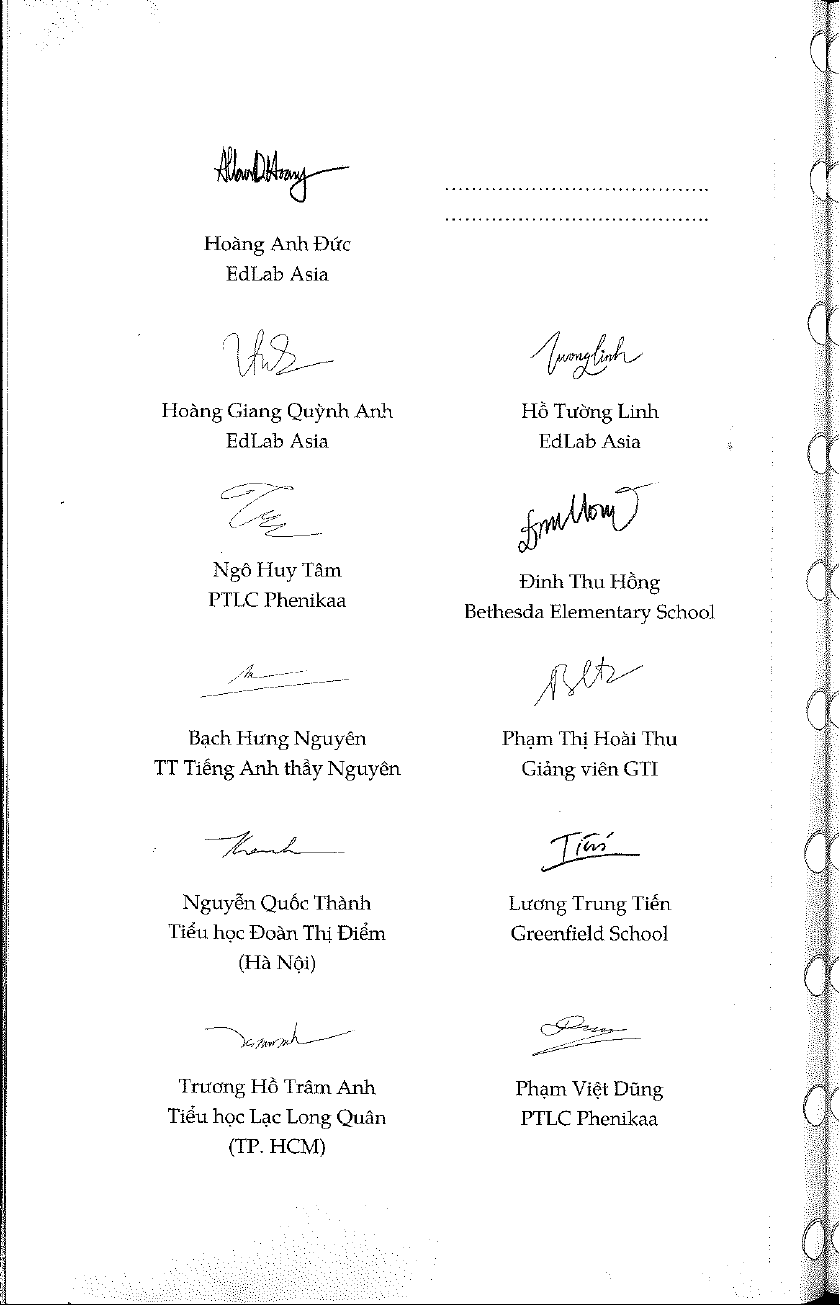 Hoàng Anh Đức
EdLab Asia
Hoàng Giang Quỳnh Anh
EdLab Asia
Hồ Tường Linh
EdLab Asia
Ngô Huy Tâm
PTLC Phenikaa
Đinh Thu Hồng
Bethesda Elementary School
Bạch Hưng Nguyên
TT Tiếng Anh thầy Nguyên
Phạm Thị Hoài Thu
Giảng viên GTI
Nguyễn Quốc Thành
Tiểu học Đoàn Thị Điểm
(Hà Nội)
Lương Trung Tiến
Greenfield School
Trương Hồ Trâm Anh
Tiểu học Lạc Long Quân
(TP. HCM)
Phạm Việt Dũng
PTLC Phenikaa